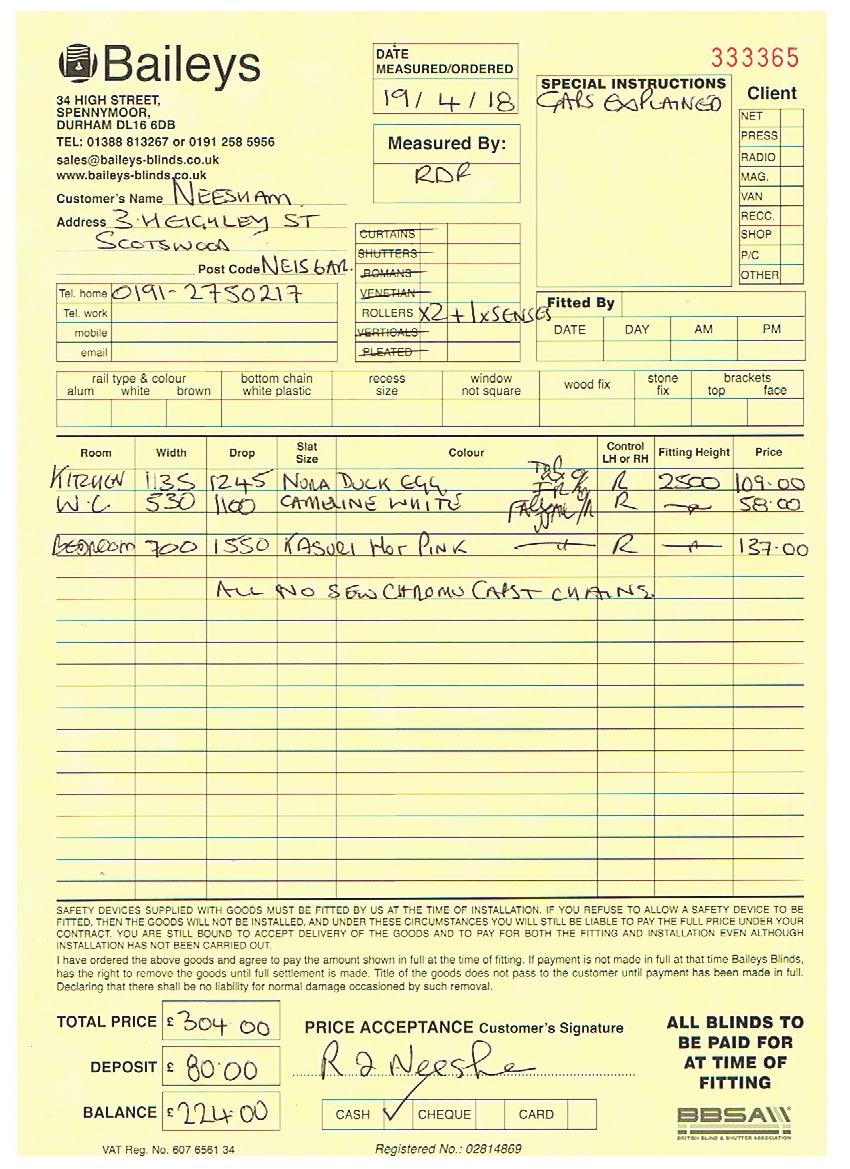 Baileys
34 HIGH STREET,
SPENNYMOOR,
DURHAM DL16 6DB
TEL: 01388 813267 or 0191 258 5956
sales@baileys-blinds.co.uk
www.baileys-blinds.co.uk
DATE
MEASURED/ORDERED
19/4/18
Measured By:
RDR
333365
SPECIAL INSTRUCTIONS
GAPS EXPLAINED
Client
NET
PRESS
RADIO
MAG.
VAN
RECC.
SHOP
P/C
OTHER
Customer's Name NEESHAM
Address 3 HEIGHLEY ST
SCOTSWOOD
Post Code NE156AR
Tel. home 0191-2750217
Tel. work
mobile
email
CURTAINS
SHUTTERS
ROMANS
VENETIAN
ROLLERS X2 + 1xSENSES
VERTICALS
PLEATED
Fitted By
DATE DAY AM PM
rail type & colour bottom chain recess window wood fix stone brackets
alum white brown white plastic size not square fix top face
Room Width Drop Slat Size Colour Control LH or RH Fitting Height Price
KITCHEN 1135 1245 NORA DUCK EGG R 2500 109.00
W.C 530 1100 WHITE R 58.00
BEDROOM 700 1550 KASURI HOT PINK R 137.00
ALL NO SEW CHROME CHAINS
SAFETY DEVICES SUPPLIED WITH GOODS MUST BE FITTED BY US AT THE TIME OF INSTALLATION. IF YOU REFUSE TO ALLOW A SAFETY DEVICE TO BE
FITTED, THEN THE GOODS WILL NOT BE INSTALLED, AND UNDER THESE CIRCUMSTANCES YOU WILL STILL BE LIABLE TO PAY THE FULL PRICE UNDER YOUR
CONTRACT. YOU ARE STILL BOUND TO ACCEPT DELIVERY OF THE GOODS AND TO PAY FOR BOTH THE FITTING AND INSTALLATION EVEN ALTHOUGH
INSTALLATION HAS NOT BEEN CARRIED OUT.
I have ordered the above goods and agree to pay the amount shown in full at the time of fitting. If payment is not made in full at that time Baileys Blinds,
has the right to remove the goods until full settlement is made. Title of the goods does not pass to the customer until payment has been made in full.
Declaring that there shall be no liability for normal damage occasioned by such removal.
TOTAL PRICE £ 304.00
DEPOSIT £ 80.00
BALANCE £ 224.00
PRICE ACCEPTANCE Customer's Signature
R J Neesha
CASH ✓ CHEQUE CARD
ALL BLINDS TO
BE PAID FOR
AT TIME OF
FITTING
BBSA
BRITISH BLIND & SHUTTER ASSOCIATION
VAT Reg. No. 607 6561 34
Registered No.: 02814869